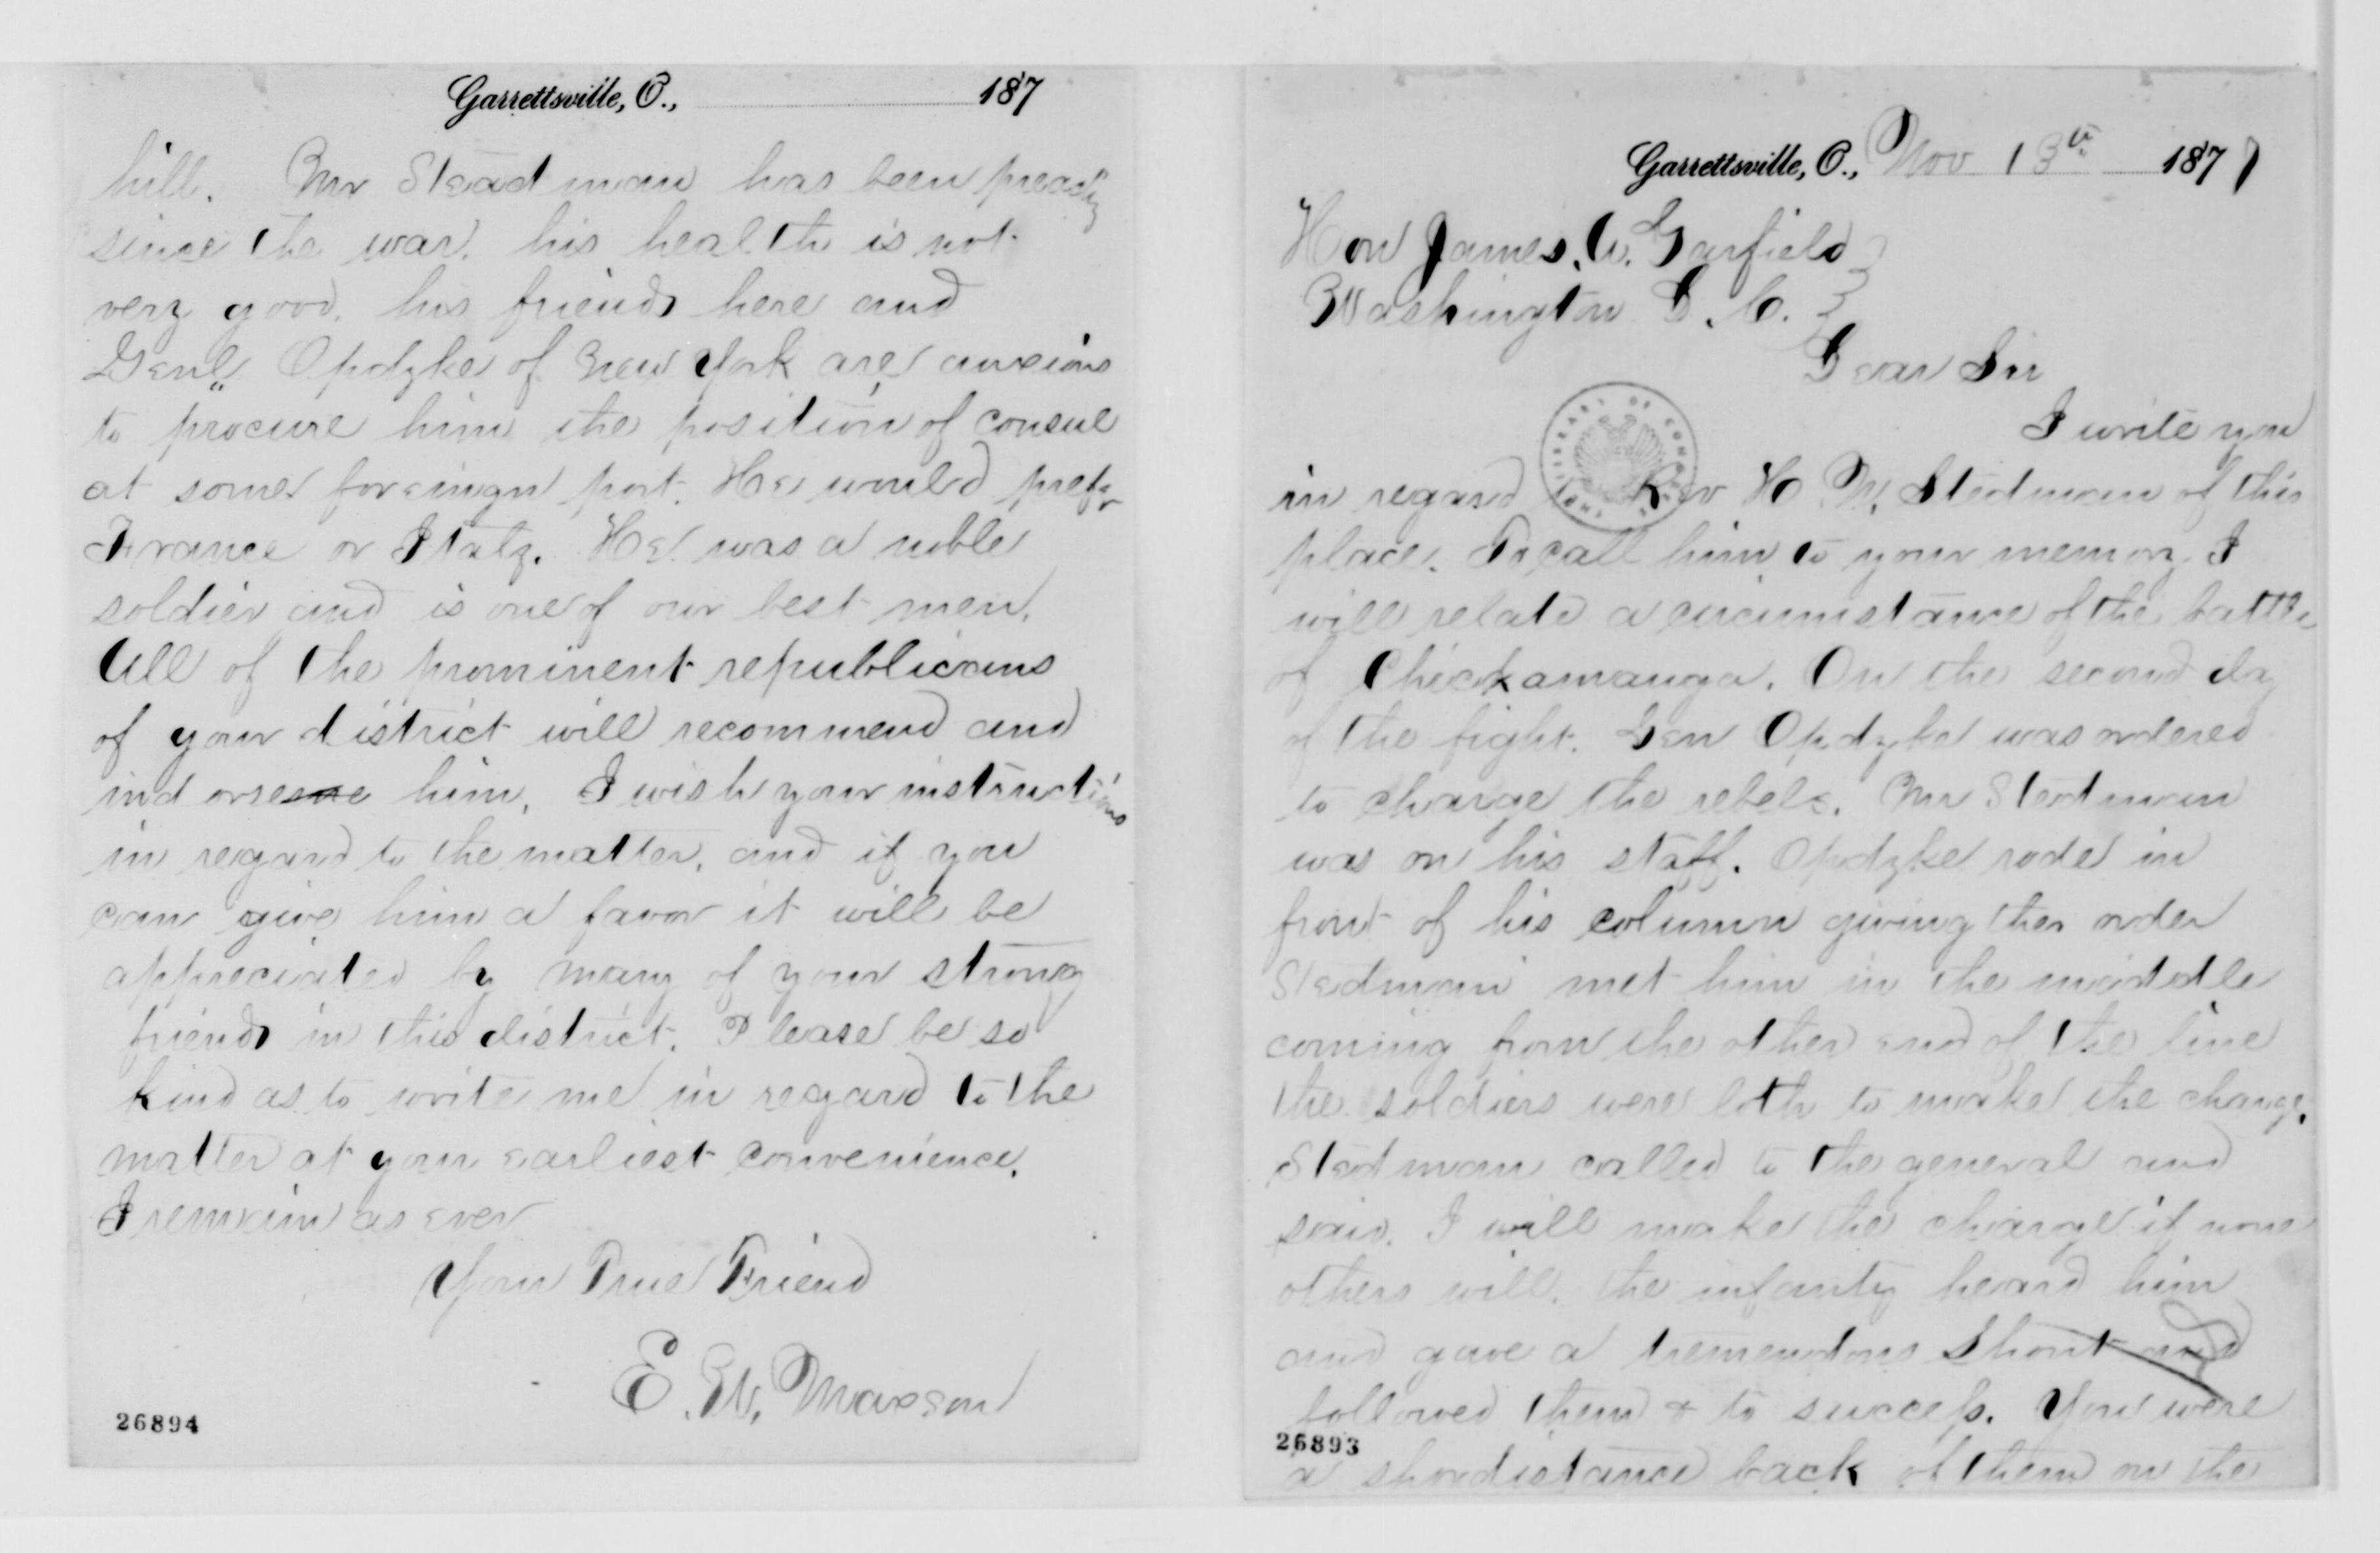 Garrettsville, O., Nov 13th 1877
Hon James. A. Garfield
Washington D. C.
Dear Sir
I write you
in regard to Rev H. W. Stedman of this
place. To call him to your memory I
will relate a circumstance of the battle
of Chickamauga. On the second day
of the fight. Gen Opdyke was ordered
to charge the rebels. Mr Stedman
was on his staff. Opdyke rode in
front of his column giving the order
Stedman met him in the middle
coming from the other end of the line
the soldiers were loth to make the charge.
Stedman called to the general and
said. I will make the charge if none
others will. the infanty heard him
and gave a tremendous shout and
followed them & to success. You were
a shordistance back of them on the
26893
Garrettsville, O., 187
hill. Mr Steadman has been preachg
since the war. his health is not
very good. his friends here and
Genl Opdyke of New York are anxious
to procure him the position of consul
at some foreingn port. He would prefer
France or Italy. He was a noble
soldier and is one of our best men.
All of the prominent republicans
of your district will recommend and
indorse him. I wish your instructions
in regard to the matter. and if you
can give him a favor it will be
appreciated by many of your strong
friends in this district. Please be so
kind as to write me in regard to the
matter at your earliest convenience.
I remain as ever
Your True Friend
E. W. Maxson
26894